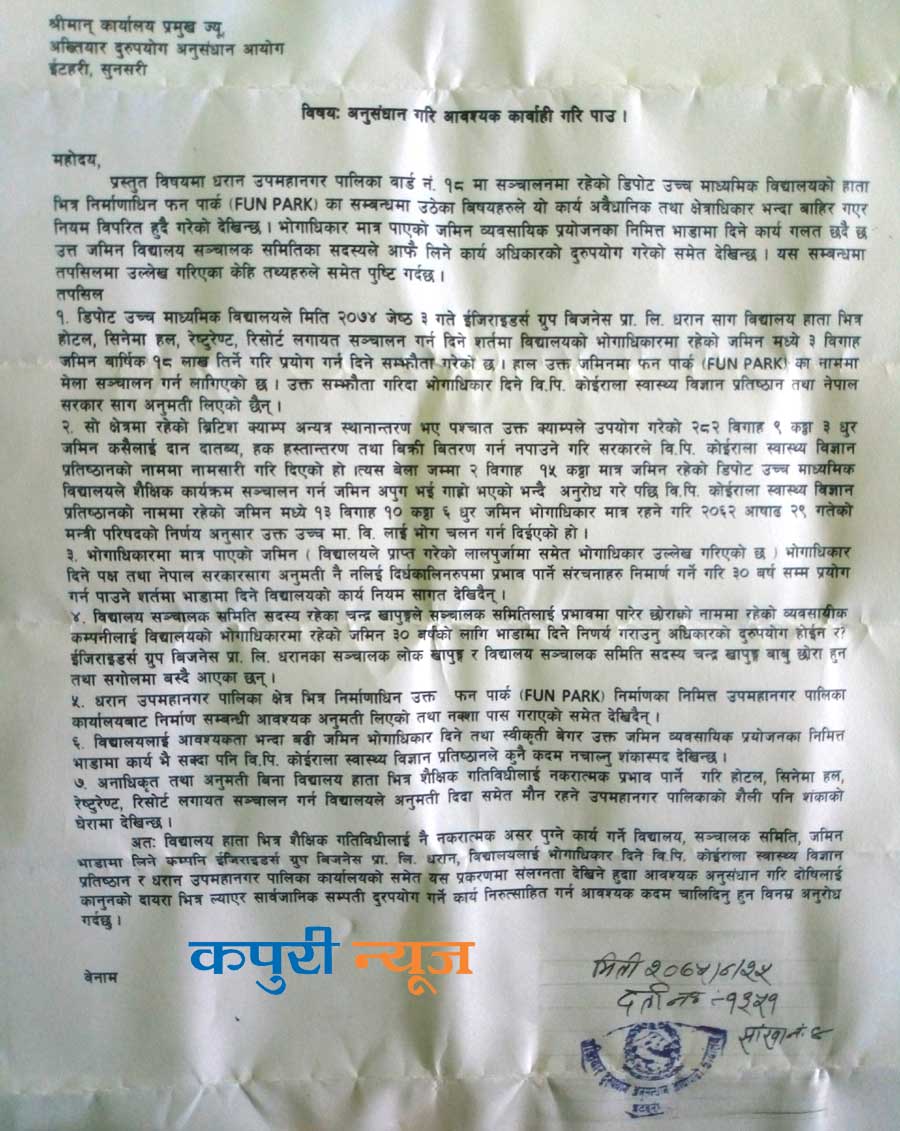 श्रीमान् कार्यालय प्रमुख ज्यू,
अख्तियार दुरुपयोग अनुसंधान आयोग
ईटहरी, सुनसरी
विषय: अनुसंधान गरि आवश्यक कार्वाही गरि पाउ ।
महोदय,
प्रस्तुत विषयमा धरान उपमहानगर पालिका वार्ड नं. १८ मा सञ्चालनमा रहेको डिपोट उच्च माध्यमिक विद्यालयको हाता
भित्र निर्माणाधिन फन पार्क (FUN PARK) का सम्बन्धमा उठेका बिषयहरुले यो कार्य अवैधानिक तथा क्षेत्राधिकार भन्दा बाहिर गएर
नियम विपरित हुदै गरेको देखिन्छ । भोगाधिकार मात्र पाएको जमिन व्यवसायिक प्रयोजनका निमित्त भाडामा दिने कार्य गलत छदै छ
उत्त जमिन विद्यालय सञ्चालक समितिका सदस्यले आफै लिने कार्य अधिकारको दुरुपयोग गरेको समेत देखिन्छ । यस सम्बन्धमा
तपसिलमा उल्लेख गरिएका केहि तथ्यहरुले समेत पुष्टि गर्दछ ।
तपसिल
१. डिपोट उच्च माध्यमिक विद्यालयले मिति २०७४ जेष्ठ ३ गते ईजिराइडर्स ग्रुप बिजनेस प्रा. लि. धरान साग विद्यालय हाता भित्र
होटल, सिनेमा हल, रेष्टुरेण्ट, रिसोर्ट लगायत सञ्चालन गर्न दिने शर्तमा विद्यालयको भोगाधिकारमा रहेको जमिन मध्ये ३ विगाह
जमिन बार्षिक १८ लाख तिर्ने गरि प्रयोग गर्न दिने सम्झौता गरेको छ । हाल उक्त जमिनमा फन पार्क (FUN PARK) का नाममा
मेला सञ्चालन गर्न लागिएको छ । उक्त सम्झौता गरिदा भोगाधिकार दिने वि.पि. कोईराला स्वास्थ्य विज्ञान प्रतिष्ठान तथा नेपाल
सरकार साग अनुमती लिएको छैन् ।
२. सो क्षेत्रमा रहेको ब्रिटिश क्याम्प अन्यत्र स्थानान्तरण भए पश्चात उक्त क्याम्पले उपयोग गरेको २८२ विगाह ९ कठ्ठा ३ धुर
जमिन कसैलाई दान दातब्य, हक हस्तान्तरण तथा बिक्री बितरण गर्न नपाउने गरि सरकारले वि.पि. कोईराला स्वास्थ्य विज्ञान
प्रतिष्ठानको नाममा नामसारी गरि दिएको हो ।त्यस बेला जम्मा २ विगाह १५ कठ्ठा मात्र जमिन रहेको डिपोट उच्च माध्यमिक
विद्यालयले शैक्षिक कार्यक्रम सञ्चालन गर्न जमिन अपुग भई गाह्रो भएको भन्दै अनुरोध गरे पछि वि.पि. कोईराला स्वास्थ्य विज्ञान
प्रतिष्ठानको नाममा रहेको जमिन मध्ये १३ विगाह १० कठ्ठा ६ धुर जमिन भोगाधिकार मात्र रहने गरि २०६२ आषाढ २९ गतेको
मन्त्री परिषदको निर्णय अनुसार उक्त उच्च मा. वि. लाई भोग चलन गर्न दिईएको हो ।
३. भोगाधिकारमा मात्र पाएको जमिन ( विद्यालयले प्राप्त गरेको लालपुर्जामा समेत भोगाधिकार उल्लेख गरिएको छ ) भोगाधिकार
दिने पक्ष तथा नेपाल सरकारसाग अनुमती नै नलिई दिर्घकालिनरुपमा प्रभाव पार्ने संरचनाहरु निमार्ण गर्ने गरि ३० बर्ष सम्म प्रयोग
गर्न पाउने शर्तमा भाडामा दिने विद्यालयको कार्य नियम सागत देखिदैन् ।
४. विद्यालय सञ्चालक समिति सदस्य रहेका चन्द्र खापुङ्गले सञ्चालक समितिलाई प्रभावमा पारेर छोराको नाममा रहेको व्यवसायीक
कम्पनीलाई विद्यालयको भोगाधिकारमा रहेको जमिन ३० बर्षको लागि भाडामा दिने निणर्य गराउनु अधिकारको दुरुपयोग होईन र?
ईजिराइडर्स ग्रुप बिजनेस प्रा. लि. धरानका सञ्चालक लोक खापुङ्ग र विद्यालय सञ्चालक समिति सदस्य चन्द्र खापुङ्ग बाबु छोरा हुन
तथा सगोलमा बस्दै आएका छन् ।
५. धरान उपमहानगर पालिका क्षेत्र भित्र निर्माणाधिन उक्त फन पार्क (FUN PARK) निर्माणका निमित्त उपमहानगर पालिका
कार्यालयबाट निर्माण सम्बन्धी आवश्यक अनुमती लिएको तथा नक्शा पास गराएको समेत देखिदैन् ।
६. विद्यालयलाई आवश्यकता भन्दा बढी जमिन भोगाधिकार दिने तथा स्वीकृती बेगर उक्त जमिन व्यवसायिक प्रयोजनका निमित्त
भाडामा कार्य भै सक्दा पनि वि.पि. कोईराला स्वास्थ्य विज्ञान प्रतिष्ठानले कुनै कदम नचाल्नु शंकास्पद देखिन्छ ।
७. अनाधिकृत तथा अनुमती बिना विद्यालय हाता भित्र शैक्षिक गतिविधीलाई नकरात्मक प्रभाव पार्ने गरि होटल, सिनेमा हल,
रेष्टुरेण्ट, रिसोर्ट लगायत सञ्चालन गर्न विद्यालयले अनुमती दिदा समेत मौन रहने उपमहानगर पालिकाको शैली पनि शंकाको
घेरामा देखिन्छ ।
अत: विद्यालय हाता भित्र शैक्षिक गतिविधीलाई नै नकरात्मक असर पुग्ने कार्य गर्ने विद्यालय, सञ्चालक समिति, जमिन
भाडामा लिने कम्पनि ईजिराइडर्स ग्रुप बिजनेस प्रा. लि. धरान, विद्यालयलाई भोगाधिकार दिने वि.पि. कोईराला स्वास्थ्य विज्ञान
प्रतिष्ठान र धरान उपमहानगर पालिका कार्यालयको समेत यस प्रकरणमा संलग्नता देखिने हुदाा आवश्यक अनुसंधान गरि दोषिलाई
कानुनको दायरा भित्र ल्याएर सार्वजानिक सम्पती दुरपयोग गर्ने कार्य निरुत्साहित गर्न आवश्यक कदम चालिदिनु हुन विनम्र अनुरोध
गर्दछु ।
कपुरी न्यूज
वेनाम
मिती
दर्ता नं :- १३५१
ईटहरी